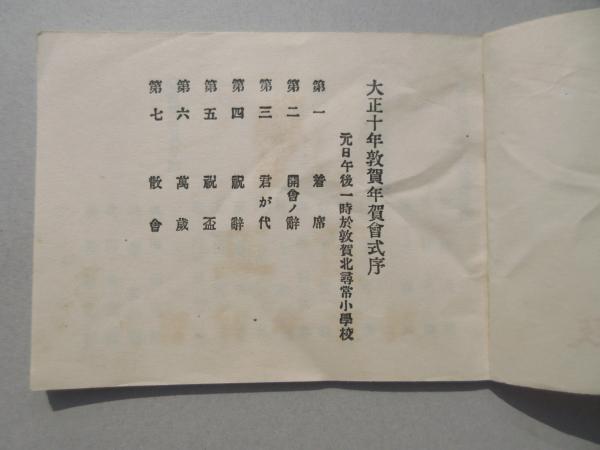 大正十年敦賀年賀會式序
元日午後一時於敦賀北尋常小學校
第一 着席
第二 開會ノ辭
第三 君が代
第四 祝辭
第五 祝盃
第六 萬歲
第七 散會